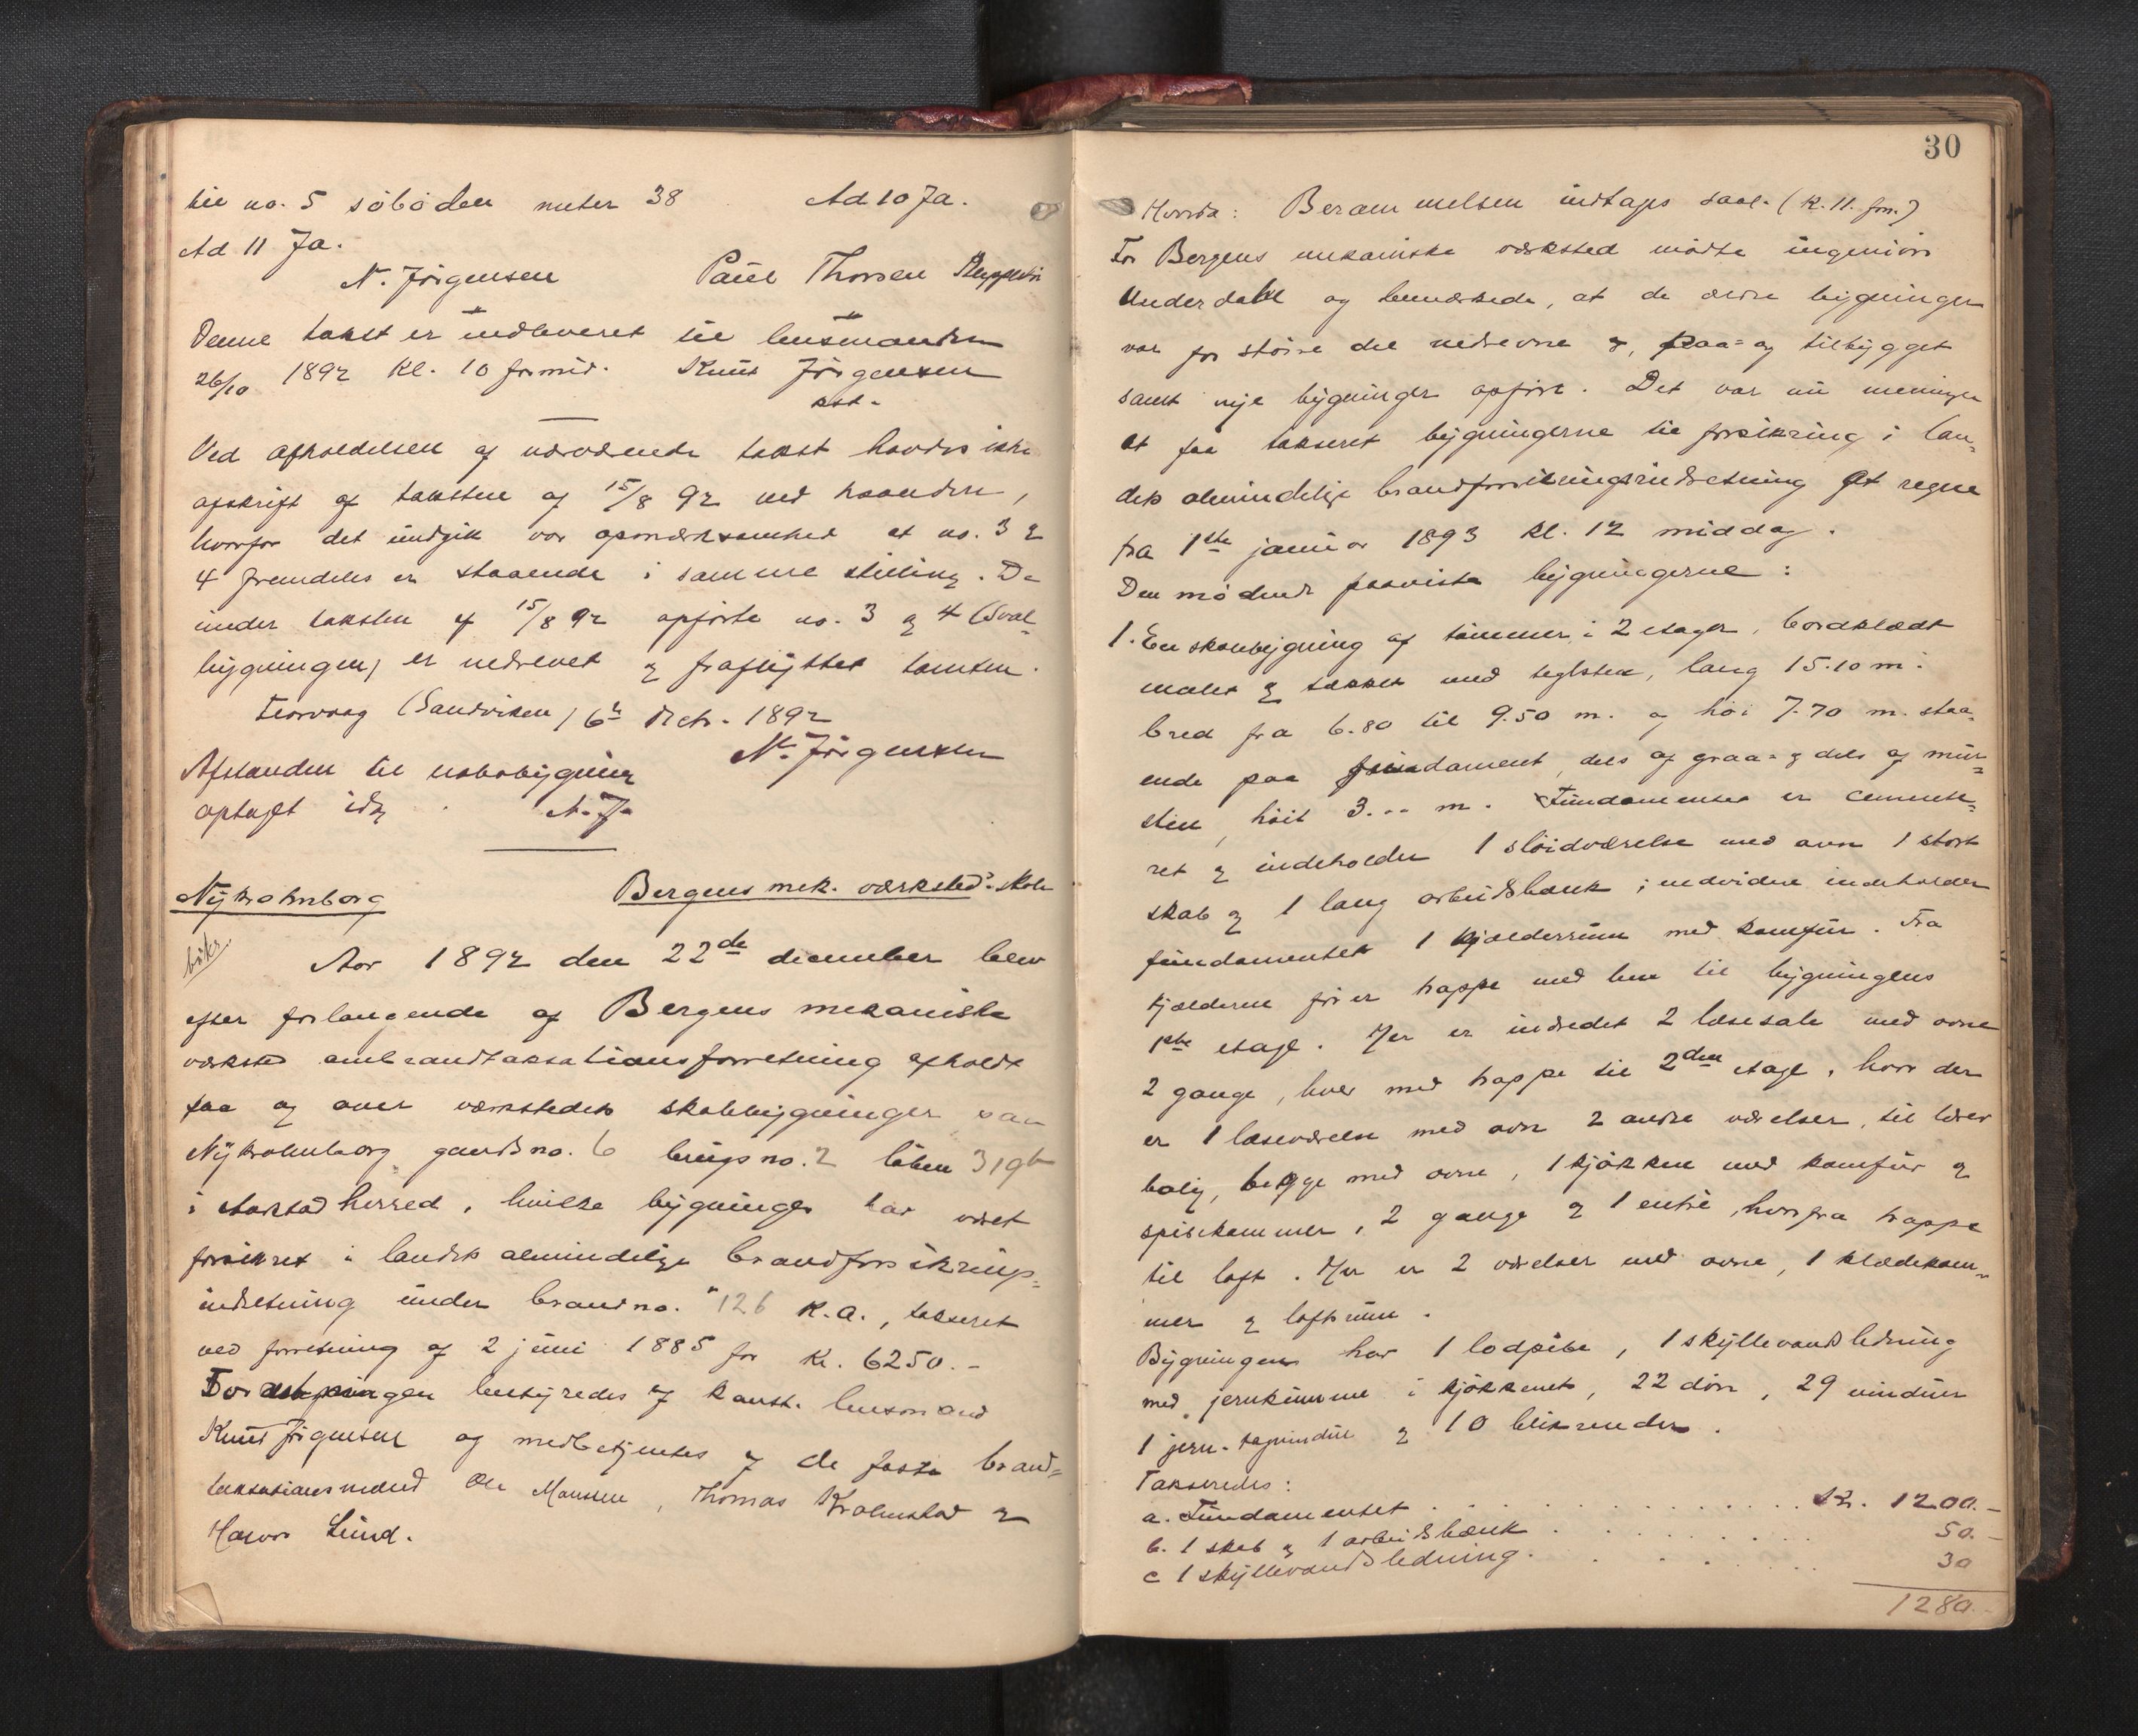 til no. 5 söboden meter 38 Ad 10 Ja.
Ad 11 Ja.
N. Jörgensen Paul Thorsen
Denne takst er indleveret til lensmanden
26/10 1892 kl. 10 formid. Knut Jörgensen
kst.
Ved afholdelsen af nærværende takst havdes ikke
afskrift af taksten af 15/8 92 ved haanden,
hvorfor det undgik vor opmærksomhed at no. 3 &
4 fremdeles er staaende i samme stilling. De
under taksten af 15/8 92 opförte no. 3 & 4 (Sval-
bygningen) er nedrevet & fraflyttet tomten.
(Sandviken) 6te 1892
N. Jörgensen
Afstanden til nabobygning
optaget idag N. J.
Nykrohnborg Bergens mek. værksted: skole
bökr.
Aar 1892 den 22de december blev
efter forlangende af Bergens mekaniske
værksted ombrandtaksationsforretning afholdt
paa og over værkstedets skolebygninger paa
Nykrohnborg gaards no. 6 brugs no. 2 löben 319b
i Aarstad herred, hvilke bygninger har været
forsikret i landets almindelige brandforsikrings-
indretning under brandno. "126 K.a., takseret
ved forretning af 2 juni 1885 for kr. 6250.-
Forretningen bestyredes af konst. lensmand
Knut Jörgensen og medbetjentes af de faste brand-
taksationsmænd Ole Monsen, Thomas Krohnstad &
Halvor Lund.
30
Hvorda: Berammelsen indtages saal. (K. 11. fm.)
For Bergens mekaniske værksted mödte ingeniör
Underdahl og bemærkede, at de ældre bygninger
var for större del nedrevne &, paa- og tilbygget
samt nye bygninger opfört. Det var nu meningen
at faa takseret bygningerne til forsikring i lan-
dets almindelige brandforsikringsindretning at regne
fra 1ste januar 1893 kl. 12 middag.
Den mödende paaviste bygningerne:
1. En skolebygning af tömmer i 2 etager, bordklædt
malet & tækket med teglsten, lang 15.10 m.
bred fra 6.80 til 9.50 m. og höi 7.70 m. staa-
ende paa fundament, dels af graa- & dels af mur-
sten, höit 3... m. Fundamentet er cemente-
ret & indeholder 1 slöidværelse med ovn 1 stort
skab & 1 lang arbeidsbænk; endvidere indeholder
fundamentet 1 kjælderrum med komfur. Fra
kjælderne förer trappe med lem til bygningens
1ste etage. Her er indredet 2 læsesale med ovne
2 gange, hver med trappe til 2den etage, hvor der
er 1 læseværelse med ovn 2 andre værelser, til lærer
bolig, begge med ovne, 1 kjökken med komfur &
spisekammer, 2 gange & 1 entré, hvorfra trappe
til loft. Her er 2 værelser med ovne, 1 klædekam-
mer & loftsrum.
Bygningen har 1 lodpibe, 1 skyllevandsledning
med jernkumme i kjökkenet, 22 döre, 29 vinduer
1 jern-tagvindue & 10 blikrender.
Takseredes:
a. Fundamentet . . . . . . kr. 1200.-
b. 1 skab & 1 arbeidsbænk . . . . . 50.-
c 1 skyllevandsledning . . . . . 30
1280.-